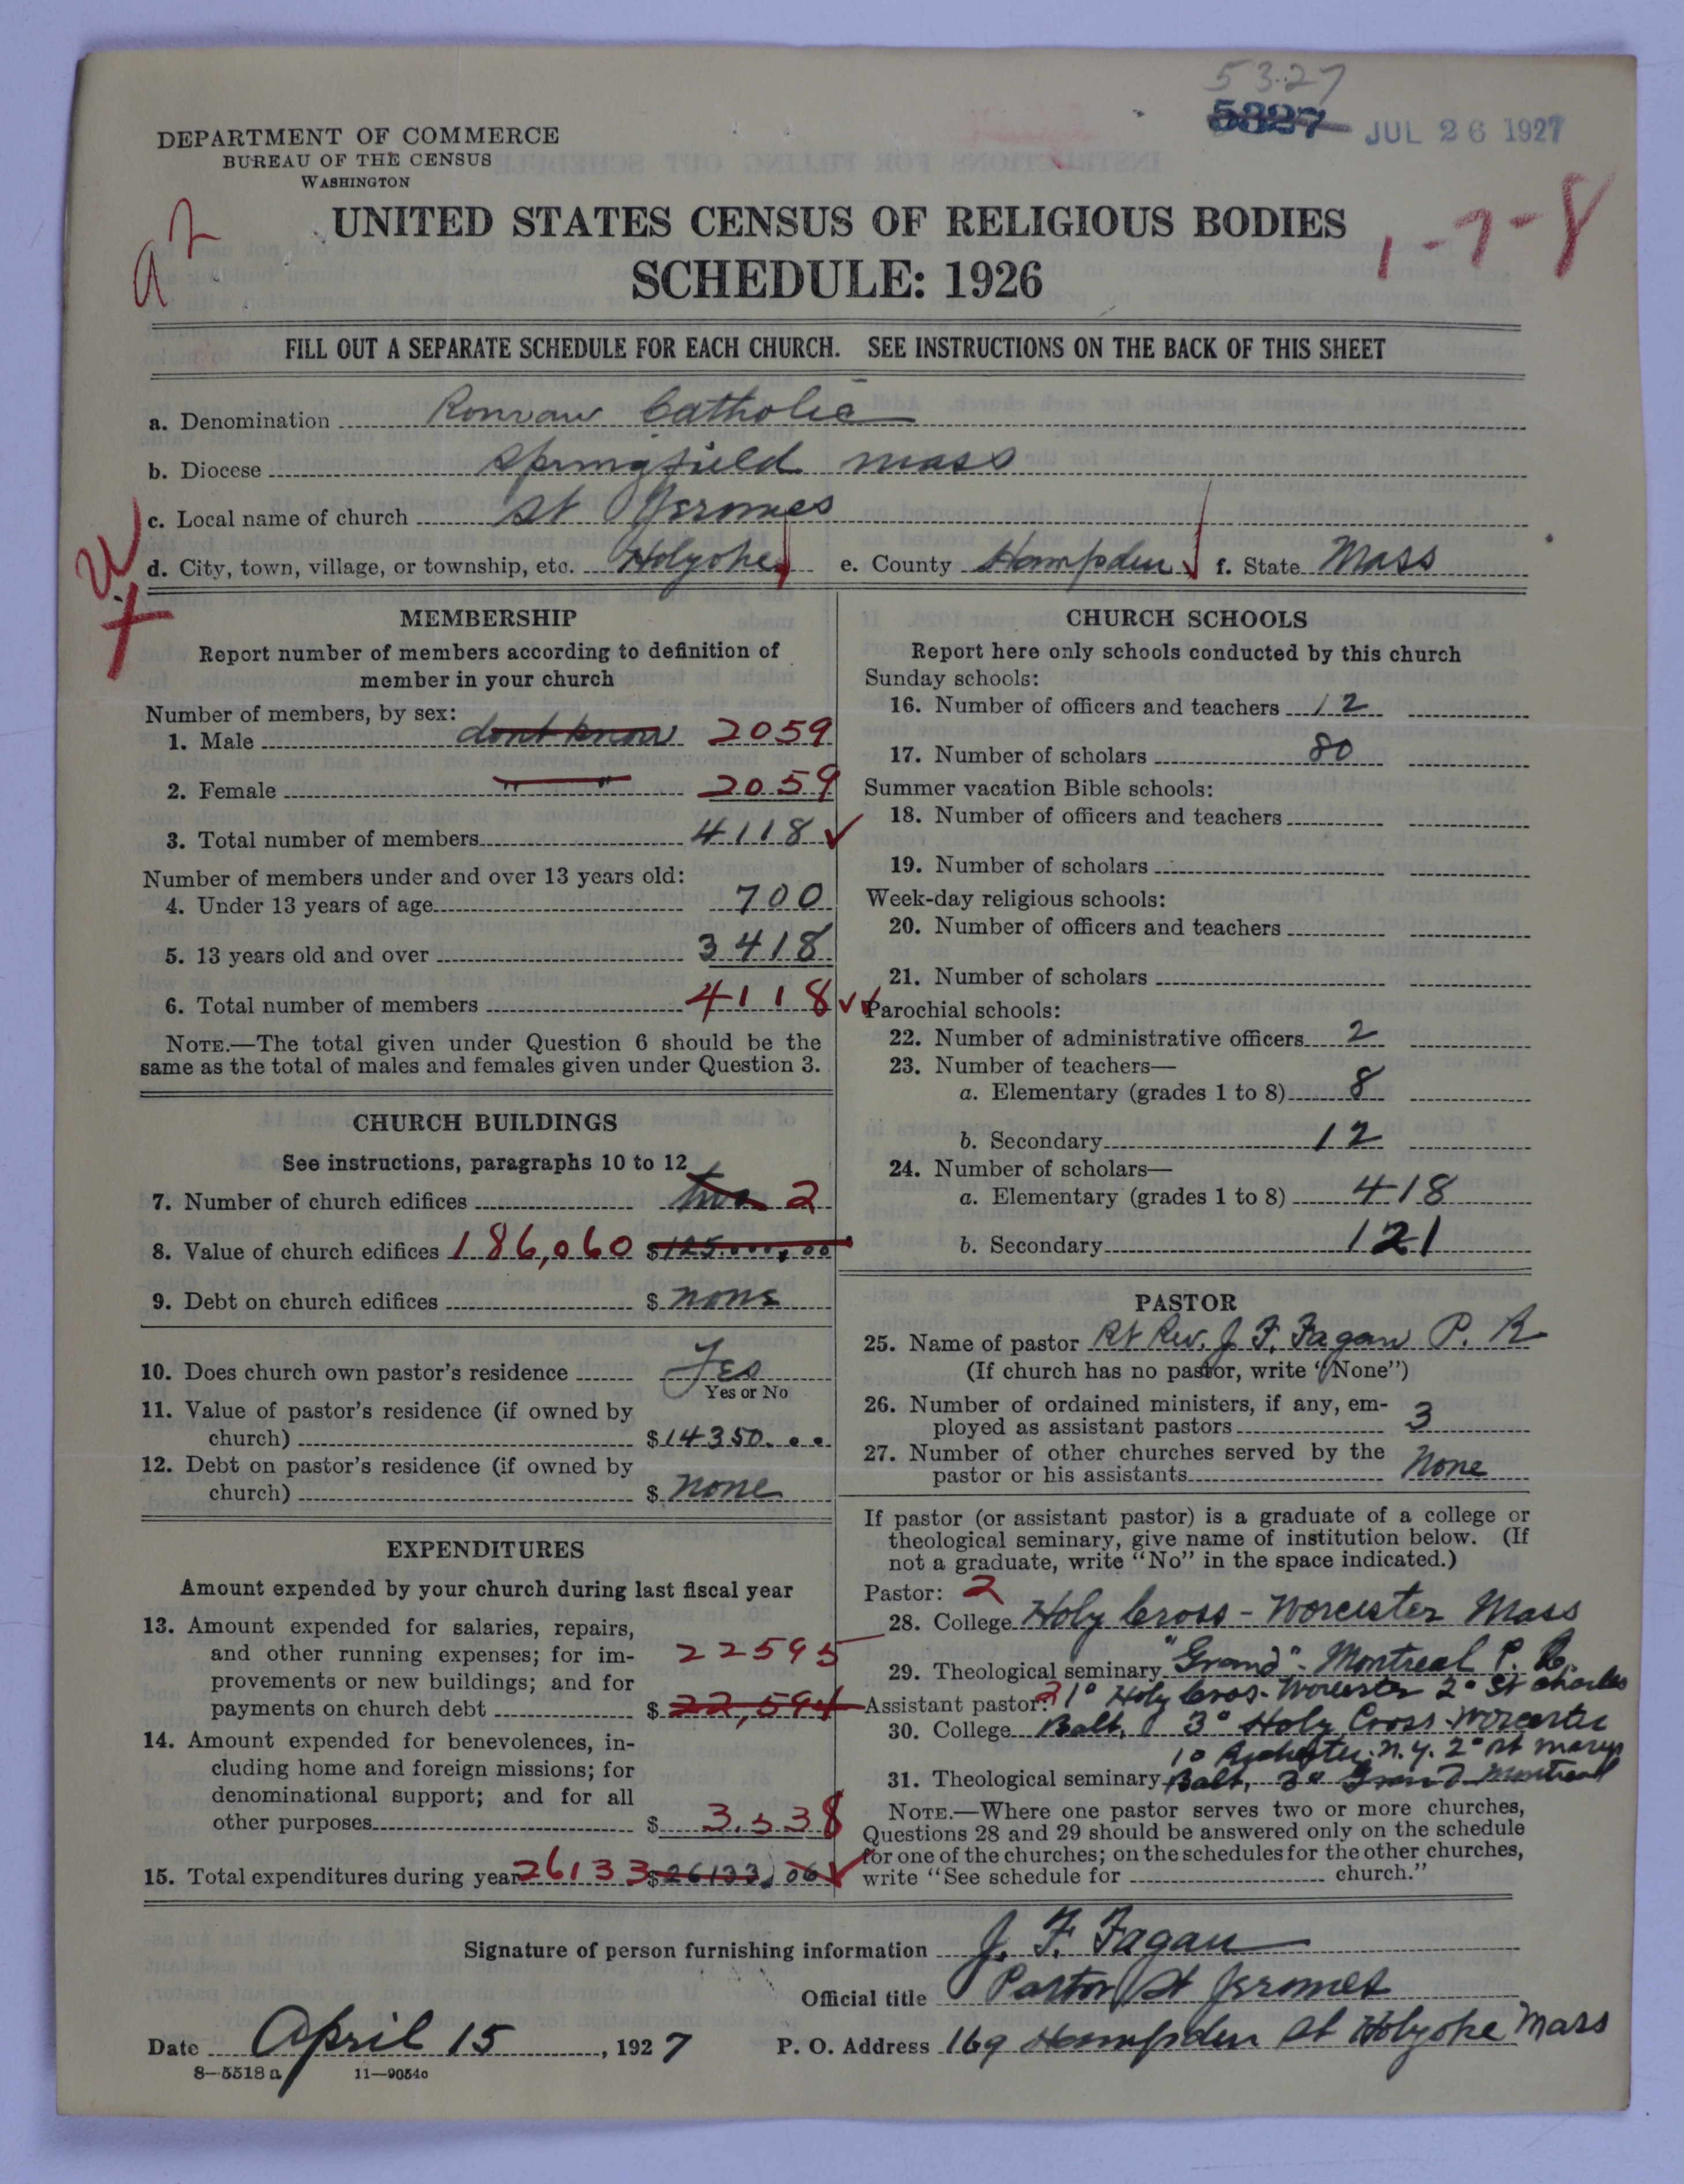 53-27
5327 JUL 26 1927
DEPARTMENT OF COMMERCE
BUREAU OF THE CENSUS
WASHINGTON
a2
UNITED STATES CENSUS OF RELIGIOUS BODIES
1-7-8
SCHEDULE: 1926
FILL OUT A SEPARATE SCHEDULE FOR EACH CHURCH. SEE INSTRUCTIONS ON THE BACK OF THIS SHEET
a. Denomination Roman Catholic
b. Diocese Springfield Mass
c. Local name of church St Jeromes
d. City, town, village, or township, etc. Holyoke e. County Hampden f. State Mass
MEMBERSHIP
Report number of members according to definition of
member in your church
Number of members, by sex:
1. Male dont know 2059
2. Female " " 2059
3. Total number of members 4118
Number of members under and over 13 years old:
4. Under 13 years of age 700
5. 13 years old and over 3418
6. Total number of members 4118
NOTE.—The total given under Question 6 should be the
same as the total of males and females given under Question 3.
CHURCH BUILDINGS
See instructions, paragraphs 10 to 12
7. Number of church edifices two 2
8. Value of church edifices 186,060 $125.000,00
9. Debt on church edifices $ none
10. Does church own pastor's residence Yes
Yes or No
11. Value of pastor's residence (if owned by
church) $14350.00
12. Debt on pastor's residence (if owned by
church) $ none
EXPENDITURES
Amount expended by your church during last fiscal year
13. Amount expended for salaries, repairs,
and other running expenses; for im-
22595
provements or new buildings; and for
payments on church debt $ 22,594
14. Amount expended for benevolences, in-
cluding home and foreign missions; for
denominational support; and for all
other purposes $ 3.538
15. Total expenditures during year 26133 $26133.06
CHURCH SCHOOLS
Report here only schools conducted by this church
Sunday schools:
16. Number of officers and teachers 12
17. Number of scholars 80
Summer vacation Bible schools:
18. Number of officers and teachers
19. Number of scholars
Week-day religious schools:
20. Number of officers and teachers
21. Number of scholars
Parochial schools:
22. Number of administrative officers 2
23. Number of teachers—
a. Elementary (grades 1 to 8) 8
b. Secondary 12
24. Number of scholars—
a. Elementary (grades 1 to 8) 418
b. Secondary 121
PASTOR
25. Name of pastor Rt Rev. J. F. Fagan P. R
(If church has no pastor, write "None")
26. Number of ordained ministers, if any, em-
ployed as assistant pastors 3
27. Number of other churches served by the
pastor or his assistants None
If pastor (or assistant pastor) is a graduate of a college or
theological seminary, give name of institution below. (If
not a graduate, write "No" in the space indicated.)
Pastor: 2
28. College Holy Cross - Worcester Mass
29. Theological seminary "Grand" - Montreal P. Q.
Assistant pastor: 2 1° Holy Cross - Worcester 2° St Charles
30. College Balt, 3° Holy Cross Worcester
1° Rochester. N.Y. 2° St Marys
31. Theological seminary Balt, 3° Grand Montreal
NOTE.—Where one pastor serves two or more churches,
Questions 28 and 29 should be answered only on the schedule
for one of the churches; on the schedules for the other churches,
write "See schedule for church."
Signature of person furnishing information J. F. Fagan
Official title Pastor St Jeromes
Date April 15, 1927 P. O. Address 169 Hampden St Holyoke Mass
8-5518 a 11-9054c